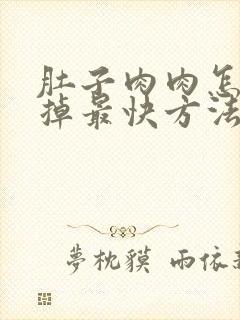 肚子肉肉怎
掉最快方法
夢枕貘 雨依